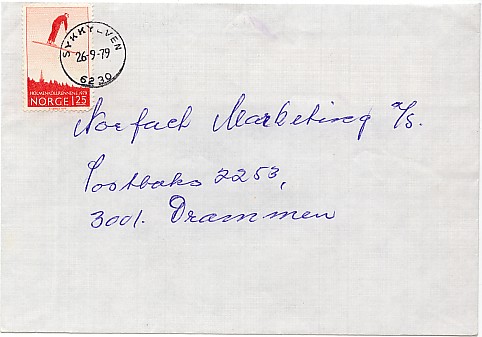 SYKKYLVEN
26-9-79
6230
HOLMENKOLLRENNENE 1979
NORGE 125
Norfact Marketing A/S.
Postboks 2253,
3001. Drammen